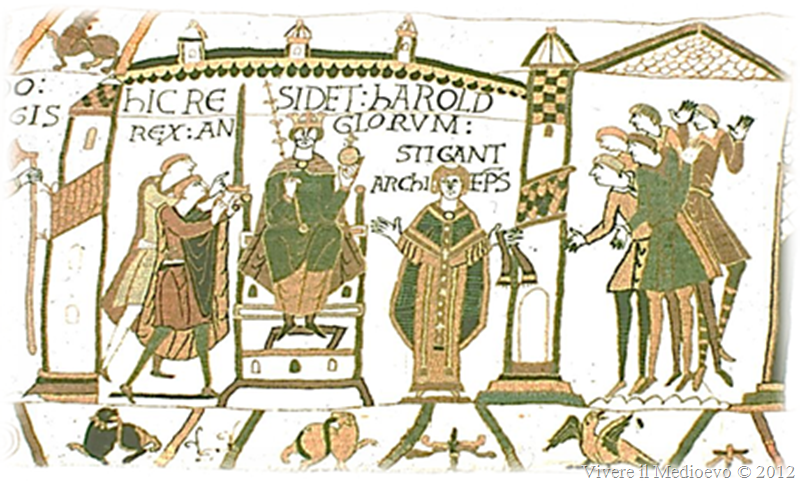 O:
GIS
hIC RE SIDET: hAROLD
REX: AN GLORVM:
STIGANT
ARChI EPS
Vivere il Medioevo © 2012